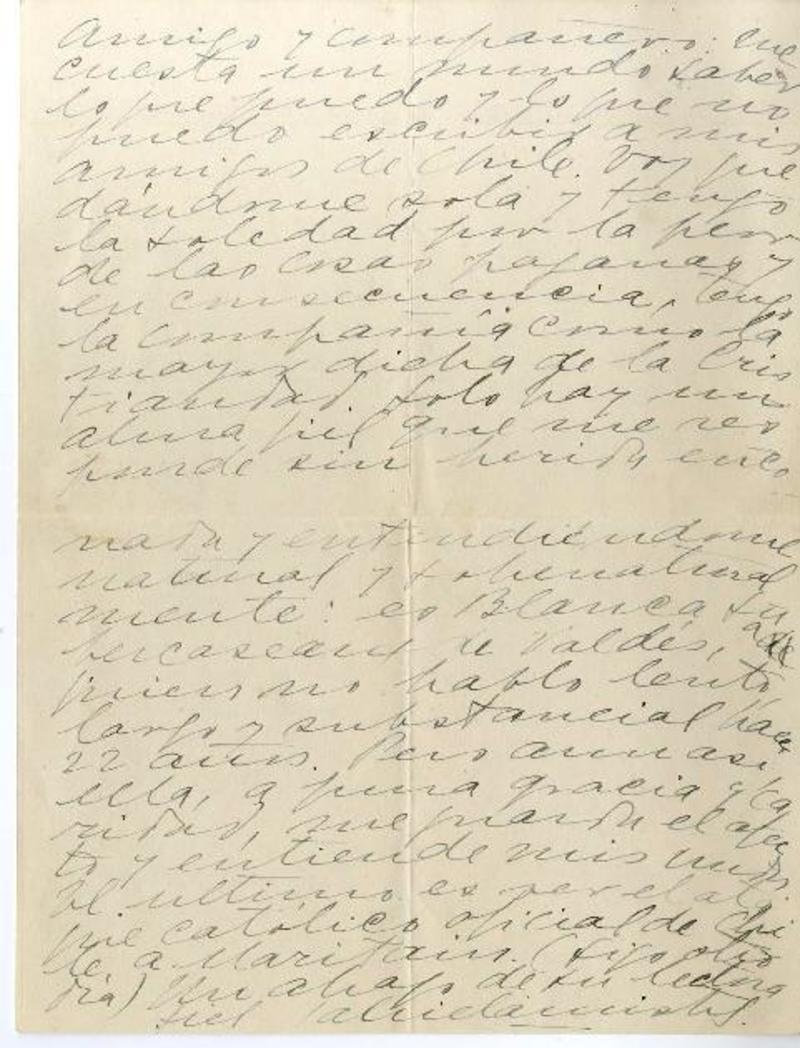 Amigo y compañero: me
cuesta un mundo saber
lo que puedo y lo que no
puedo escribir a mis
amigos de Chile. Voy que
dándome sola y tengo
la soledad por la peor
de las cosas paganas y
en consecuencia, tengo
la compañía como la
mayor dicha de la Cris
tiandad. Solo hay un
alma fiel que me res
ponde sin herida enco
nada y entendiéndome
natural y sobrenatural
mente: es Blanca Su
bercaseaux de Valdés, a
quien no hablo lento
largo y substancial hace
22 años. Pero aun así
ella, a pura gracia y ca
ridad, me guarda el afec
to y entiende mis
El ultimo es ver el ata
que católico oficial de Chi
le a Maritain. (Sigo otro
día) Un abrazo de su lectora
fiel